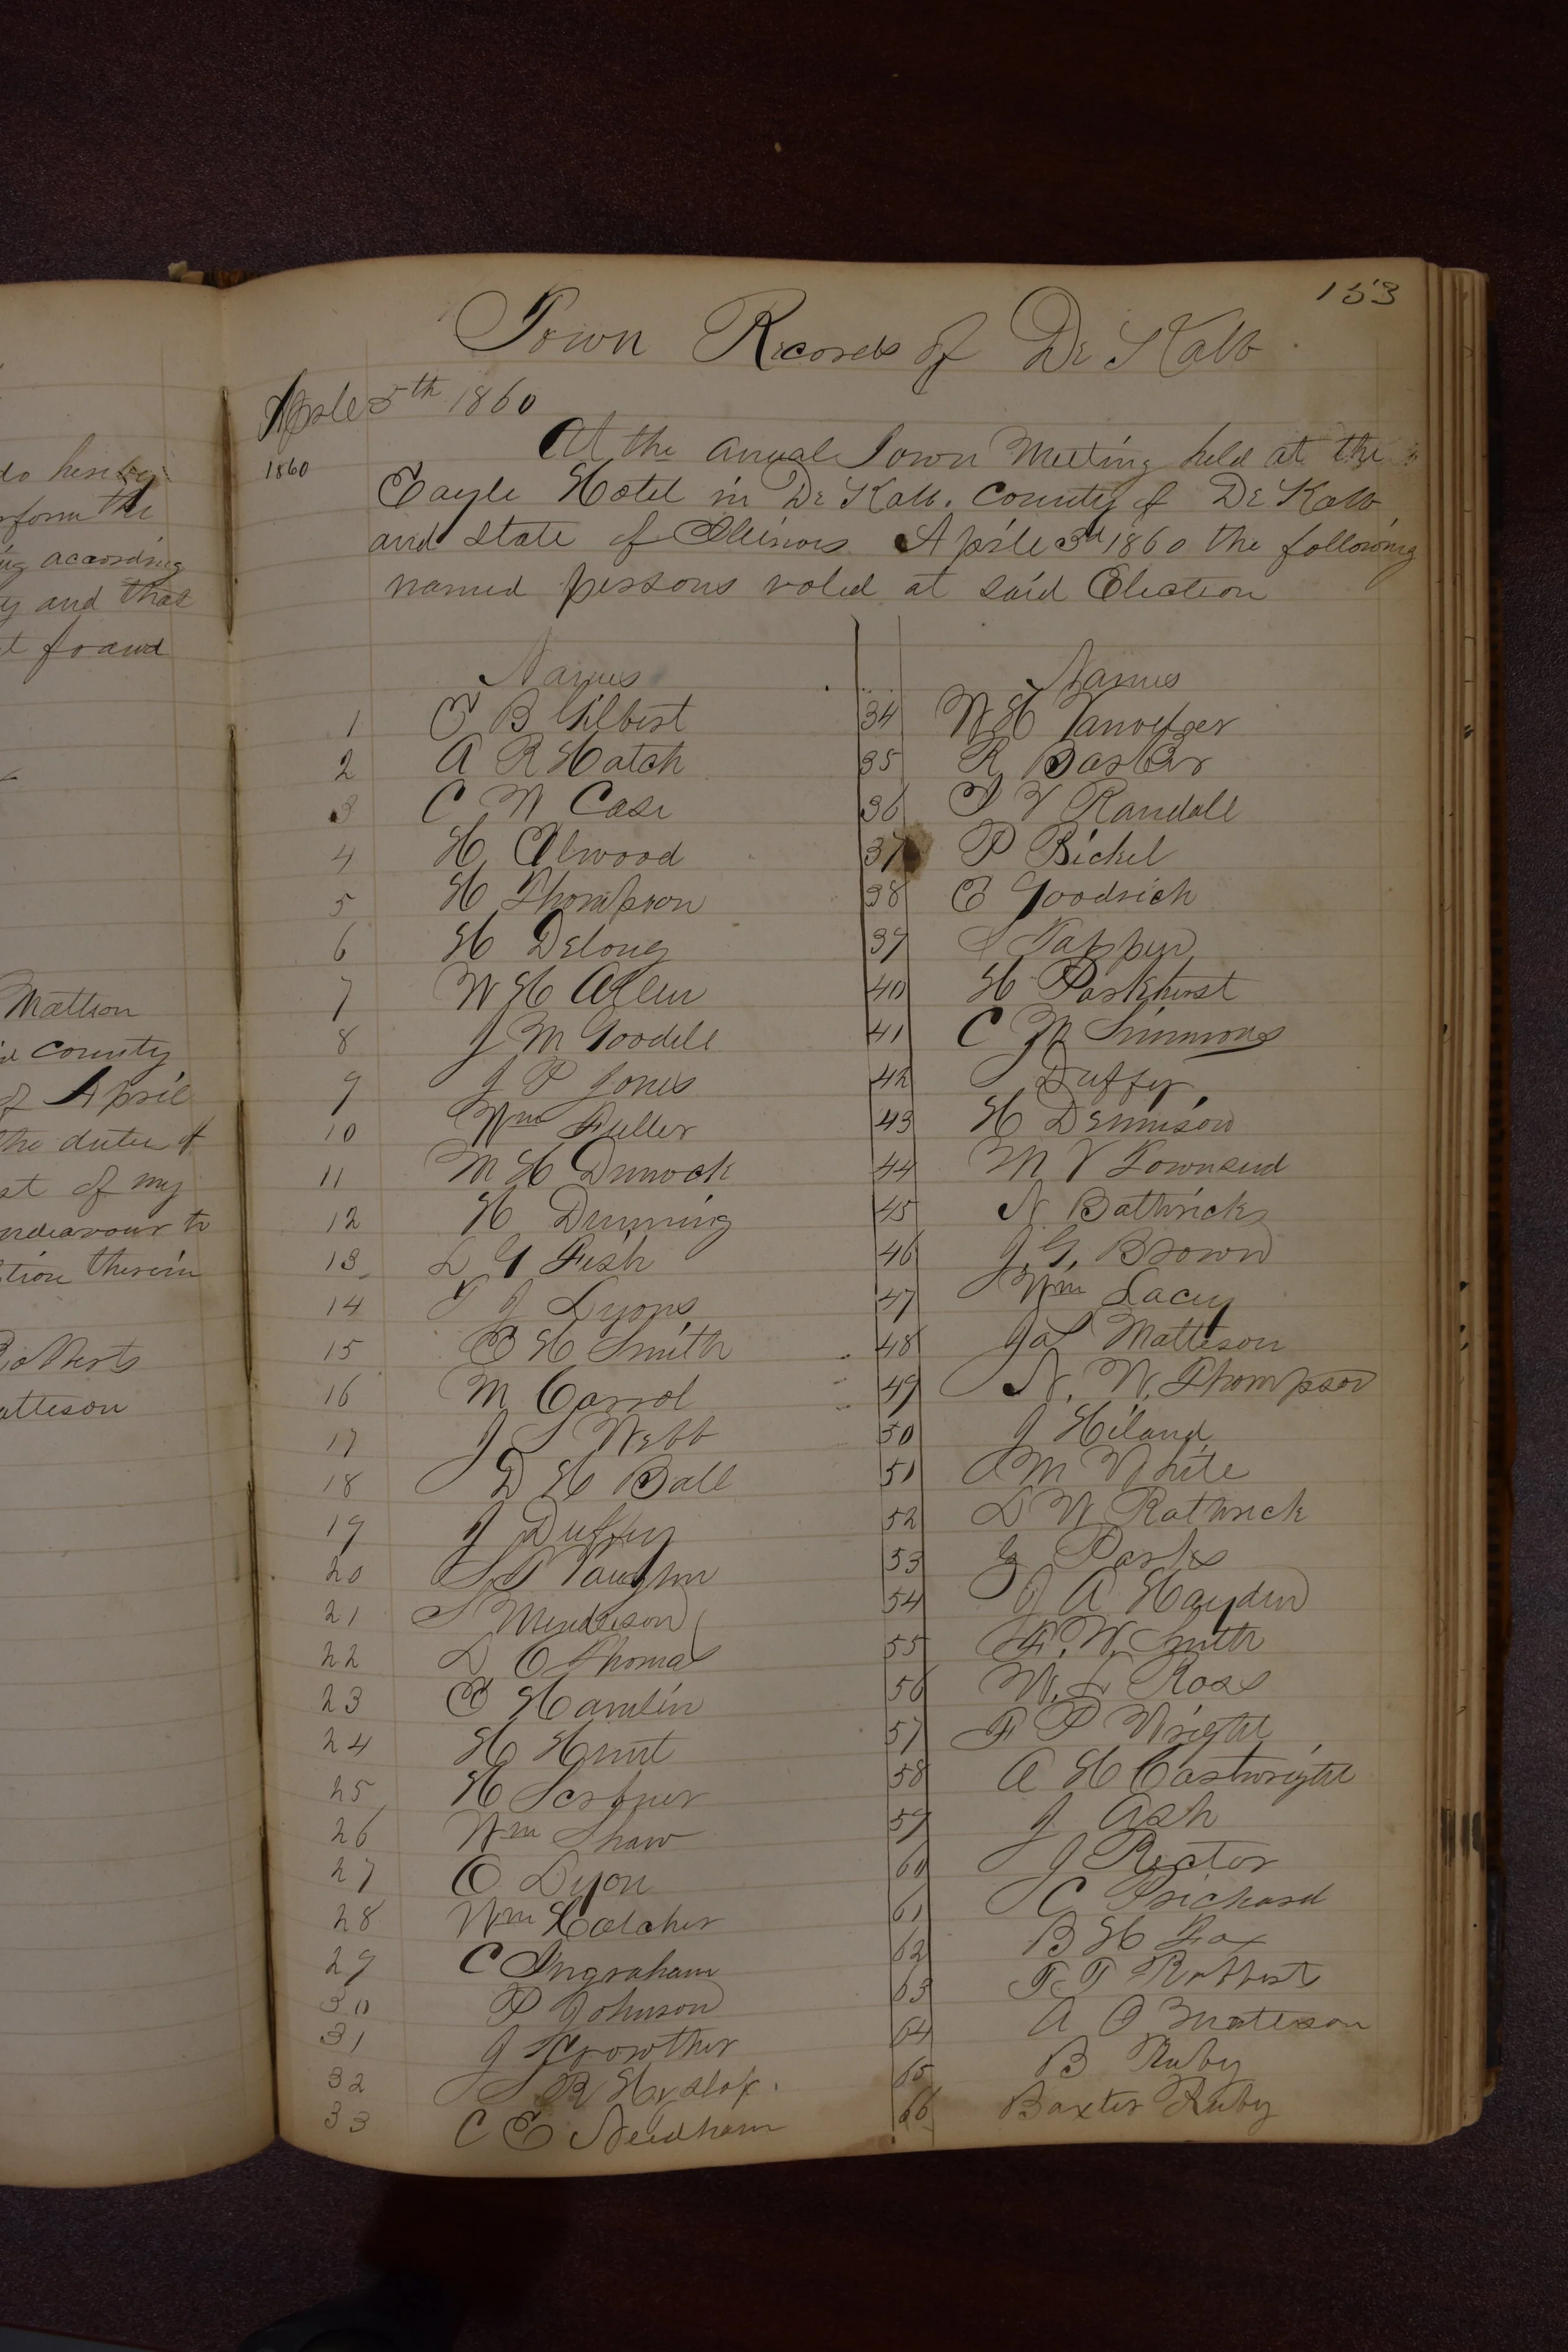 153
Town Records of De Kalb
Aprile 5th 1860
1860
At the anual Town Meeting held at the
Eagle Hotel in De Kalb. County of De Kalb
and State of Illinois Aprile 3d 1860 the following
named persons voted at said Election
Names
1 E B Gilbert
2 A R Hatch
3 C W Case
4 H Atwood
5 H Thompson
6 H Delong
7 W H Allen
8 J M Goodell
9 J P Jones
10 Wm Fuller
11 M H Dimock
12 H Dunning
13 L G Fish
14 J Lyons
15 E H Smith
16 M Carrol
17 J S Webb
18 D H Ball
19 J Duffey
20 S P Vaughn
21 S
22 L O Thomas
23 E Hamlin
24 H Hunt
25 H Scribner
26 Wm Shaw
27 O Lyon
28 Wm Hatcher
29 C Ingraham
30 P Johnson
31 J Crowther
32 S R Hyslop.
33 C E Needham
Names
34 W H
35 R
36 V Randall
37 P Bickel
38 E Goodrich
39 S Tappen
40 H Parkhurst
41 C M Simmons
42 Duffey
43 H Dennison
44 M V Townsend
45 N Bathrick
46 J. G. Brown
47 Wm Lacey
48 Jas Matteson
49 N. W. Thompson
50 J Hiland
51 M White
52 L W Bathrick
53 G Parks
54 J A Hayden
55 F. W. Smith
56 W. L Ross
57 F P Wright
58 A H Cartwright
59 J Ash
60 J Rector
61 C Prichard
62 B H Fox
63 F T Robbert
64 A O Matteson
65 B Ruby
66 Baxter Ruby
do hereby
rform the
ng according
y and that
t fraud
Mattson
id County
of April
the duties of
st of my
ndeavour to
tion therein
Robberts
atteson